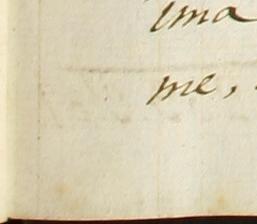 ima
me,